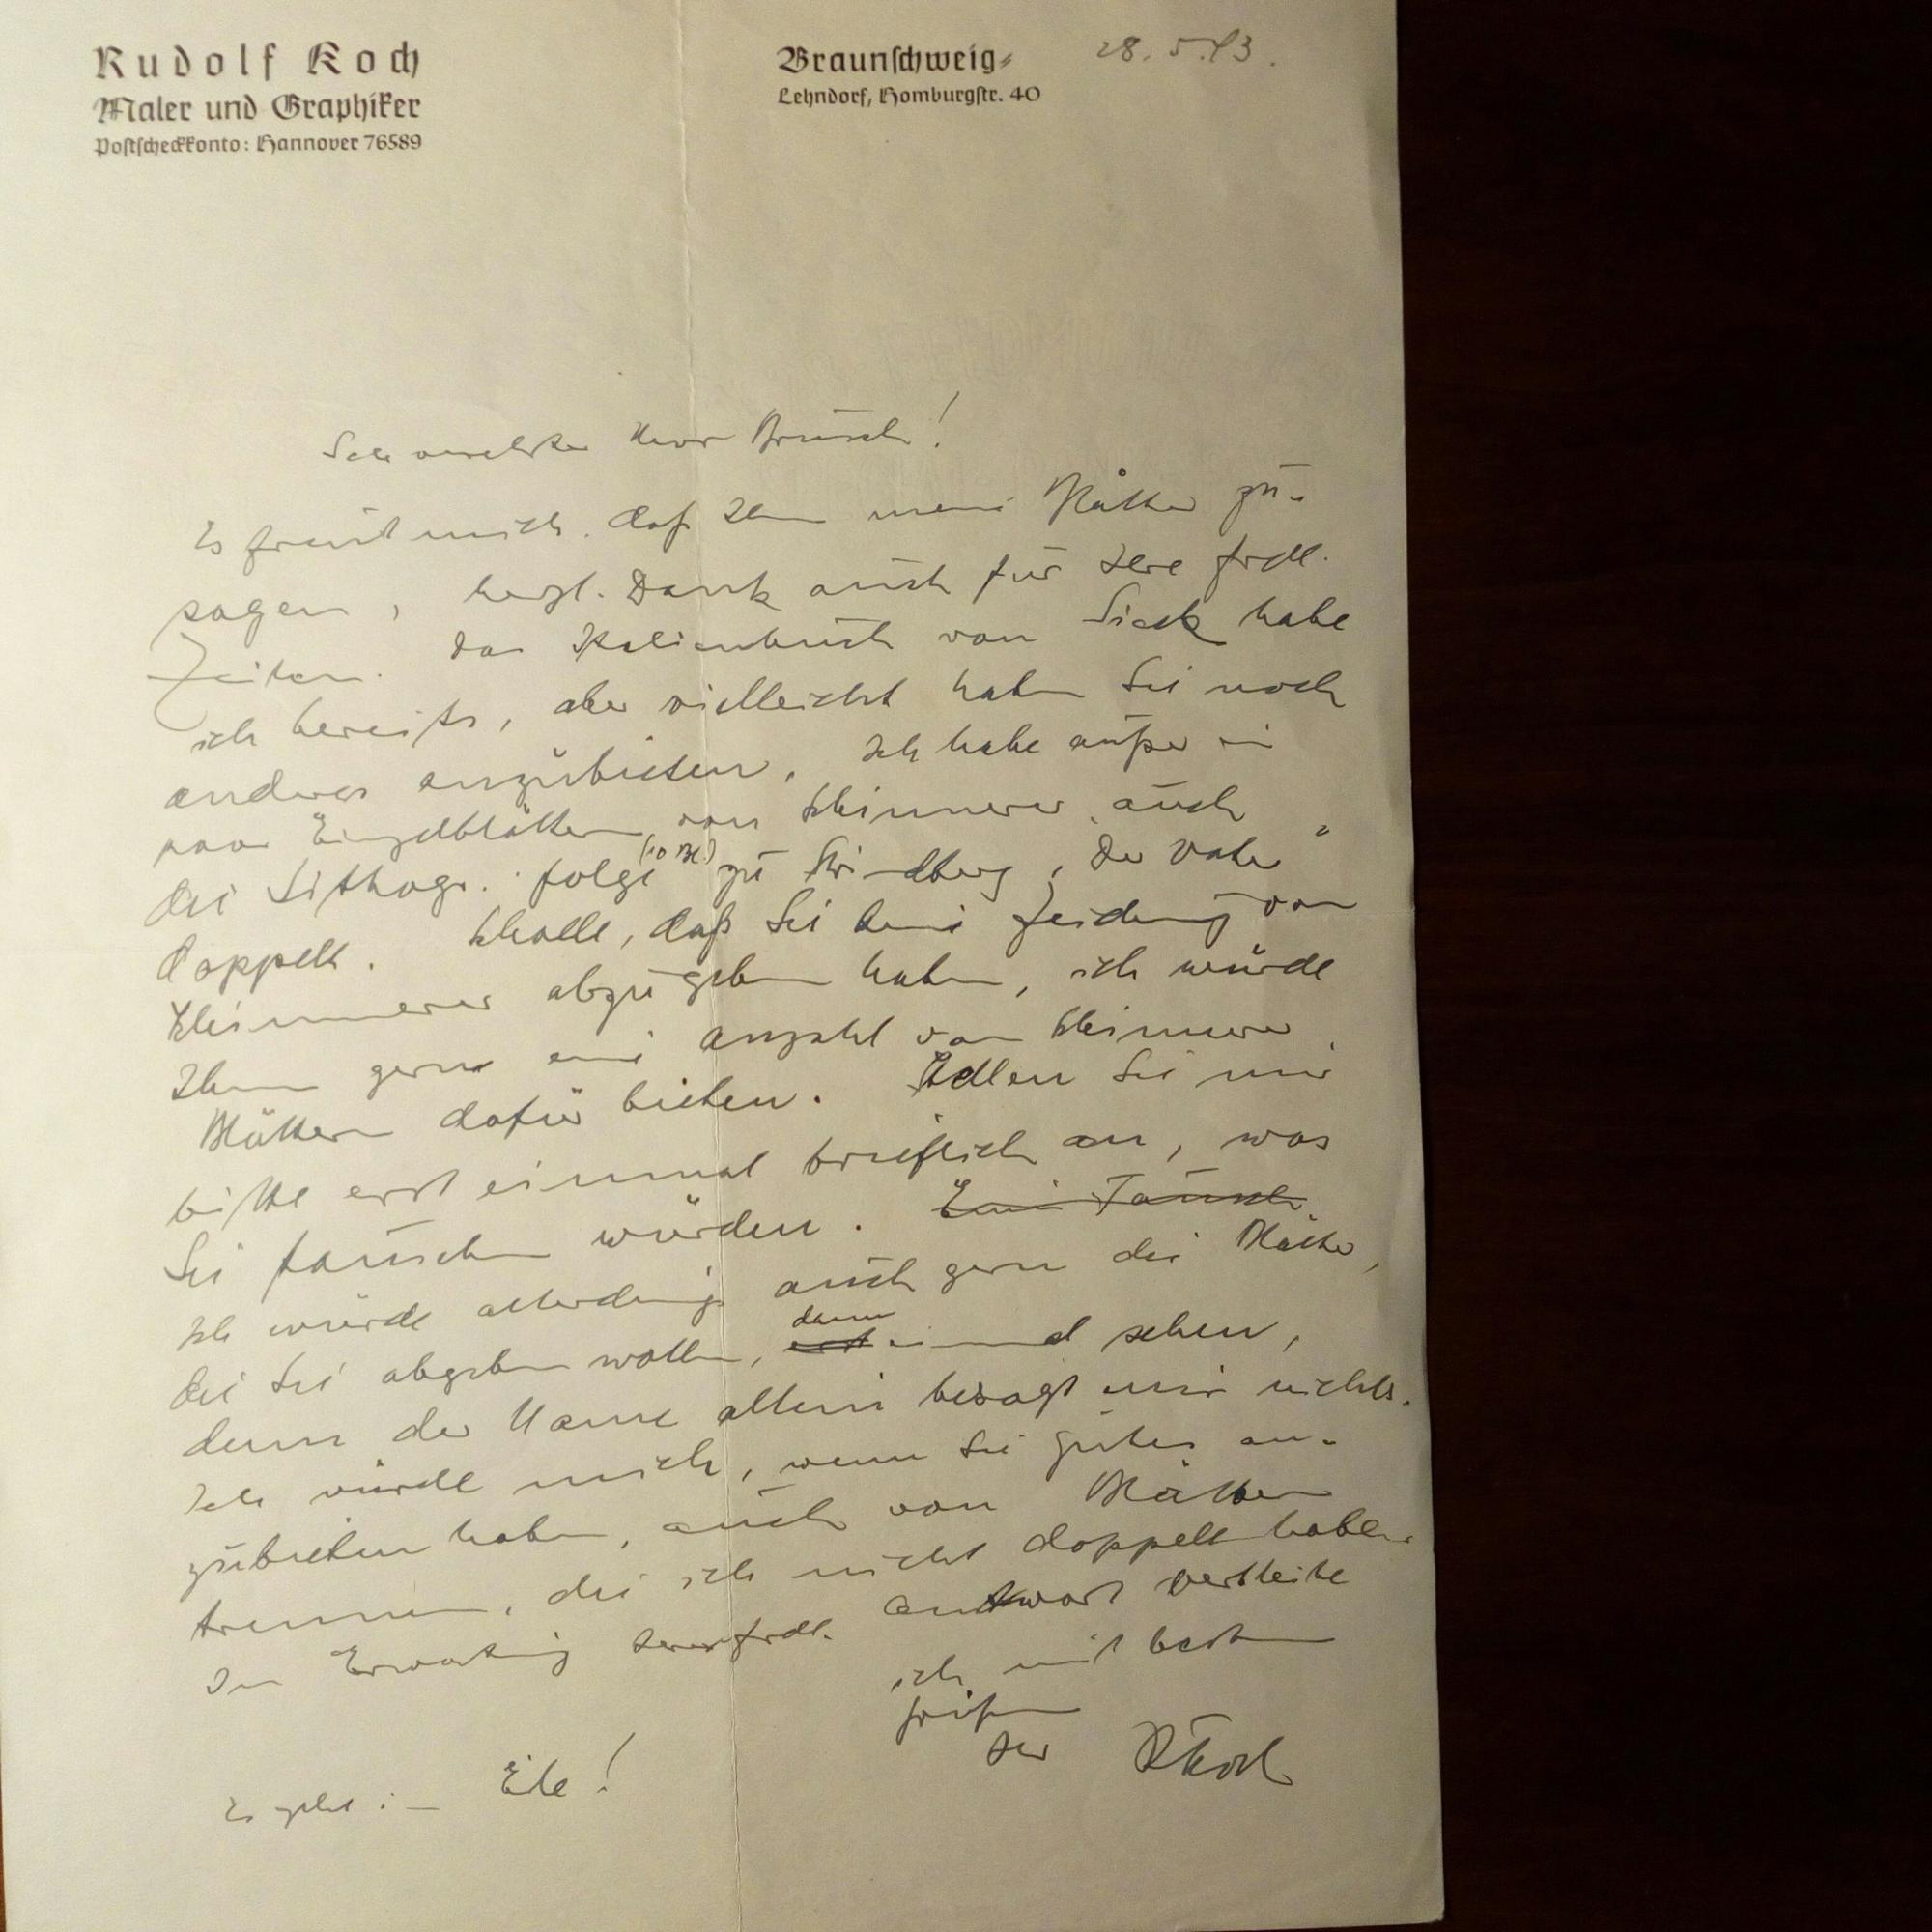 Rudolf Koch
Maler und Graphiker
Postscheckkonto: Hannover 76589
Braunschweig-
Lehndorf, Homburgstr. 40
28. 5. 43.
Sehr verehrter Herr Brüsch!
Es freut mich, daß Ihnen meine Blätter zu-
sagen, herzl. Dank auch für Ihre frdl.
Zeilen. Das Italienbuch von Sieck habe
ich bereits, aber vielleicht haben Sie noch
anderes anzubieten. Ich habe außer ein
paar Einzelblättern von Klemmer auch
die Lithogr. folge (10 Bl.) zu Strindberg „Der Vater"
doppelt. Schade, daß Sie keine Zeichnung von
abzugeben haben, ich würde
Ihnen gerne eine Anzahl von
Blättern dafür bieten. Stellen Sie mir
bitte erst einmal brieflich an, was
Sie tauschen würden. Ein Tausch
Ich würde allerdings auch gern die Blätter,
die Sie abgeben wollen, erst dann einmal sehen,
denn der Name allein besagt mir nichts.
Ich würde mich, wenn Sie gutes an-
zubieten haben, auch von Blättern
trennen, die ich nicht doppelt habe.
In Erwartung Ihrer frdl. Antwort verbleibe
ich mit besten
Grüßen
Ihr RKoch
Eile!